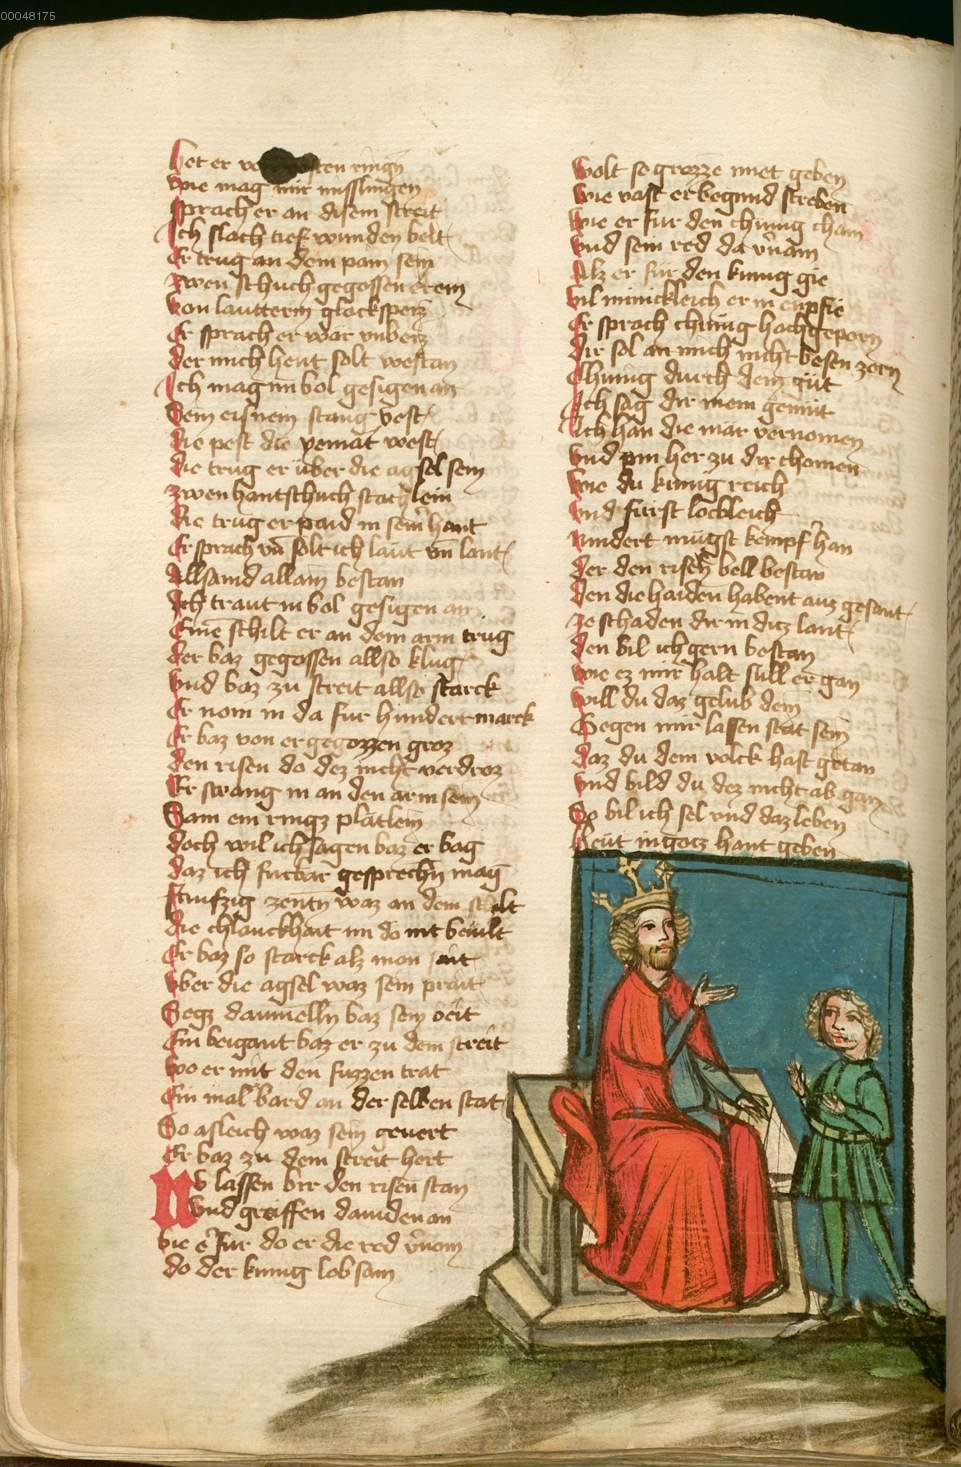 00048175
Het er ten ringn
wie mag mir misslingen
sprach er an disem streit
Ich slach tief wunden beit
Er trug an dem pain sein
zwen schuch gegossen erein
von lautterm glockspeis
Er sprach er wär unbeis
der mich heut solt westan
Ich mag im bol gesigen an
Sein eisnein stang vest
die pest die yemät west
die trug er über die agsel sein
zwen hantschuch stachlein
die trug er paid in seinr hant
Er sprach vn̄ solt ich laüt vn̄ lant
Allsamd allain bestan
Ich traut in bol gesigen an
Eine schilt er an dem arm trug
der baz gegossen allso klug
vnd baz zu streit allso starck
Er nom in da für hundert marck
Er baz von er gegozzen groz
den risen do dez nicht verdroz
Er swang in an den arm sein
Sam ein ringz plätlein
doch wil ich sagen baz er bag
daz ich fürbar gesprechn mag
fünfzig zentn waz an dem schilt
die chlauckhait im do nit beuilt
Er baz so starck alz mon sait
vber die agsel waz sein prait
Segz daumelln baz sein
Ein beigant baz er zu dem streit
wo er mit den fuzzen trat
Ein mal bard an der selben stat
So asleich waz sein geuert
Er baz zu dem streit hert
Nv lassen bir den risen stan
vnd greiffen dauiden an
bie er für do er die red v̄nom
do der kunig lobsam
wolt so grozze miet geben
wie vast er begund streben
wie er für den chunig cham
vnd sein red da v̄nam
Alz er für den kunig gie
vil minickleich er in enpfie
Er sprach chunig hochgeporn
dir sol an mich nicht besen zorn
Chunig durch dein güt
Ich sag dir mein gemüt
Ich han die mär vernomen
vnd pin her zu dir chomen
wie du kunig reich
vnd fürst lobleich
nindert mügst kempf̄ han
der den risen bell bestan
den die haiden habent auz gesant
ze schaden dir in diz lant
den bil ich gern bestan
wie ez mir halt süll er gan
will du daz gelub dein
Gegen mir lassen stät sein
daz du dem volck hast getan
vnd bild du dez nicht ab gan
So bil ich sel vnd daz leben
Heut in gotz hant geben